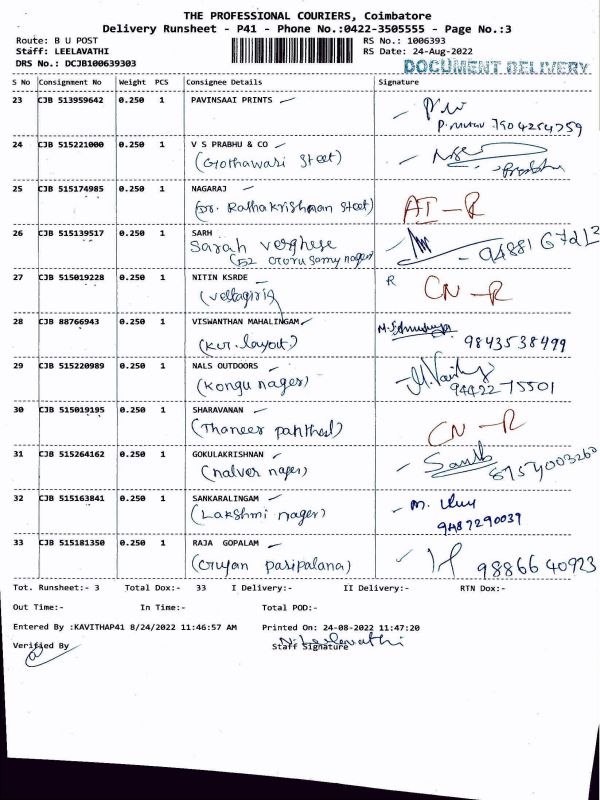 THE PROFESSIONAL COURIERS, Coimbatore
Delivery Runsheet - P41 - Phone No.:0422-3505555 - Page No.:3
Route: B U POST RS No.: 1006393
Staff: LEELAVATHI RS Date: 24-Aug-2022
DRS No.: DCJB100639303 DOCUMENT DELIVERY
S No Consignment No Weight PCS Consignee Details Signature
23 CJB 513959642 0.250 1 PAVINSAAI PRINTS
7904254759
24 CJB 515221000 0.250 1 V S PRABHU & CO
(Gothawari Steet)
25 CJB 515174985 0.250 1 NAGARAJ
(Dr. Rathakrishnan Steet) AI - R
26 CJB 515139517 0.250 1 SARH
Sarah Verghese
(52 samy nager)
27 CJB 515019228 0.250 1 NITIN KSRDE R CN - R
28 CJB 88766943 0.250 1 VISWANTHAN MAHALINGAM
(kvr. layout) 9843538499
29 CJB 515220989 0.250 1 NALS OUTDOORS
(kongu nager) 9442275501
30 CJB 515019195 0.250 1 SHARAVANAN
(Thaneer panthal) CN - R
31 CJB 515264162 0.250 1 GOKULAKRISHNAN
(nalver nager)
32 CJB 515163841 0.250 1 SANKARALINGAM
(Lakshmi nager) 9487290039
33 CJB 515181350 0.250 1 RAJA GOPALAM
(Gruyan paripalana) 9886640923
Tot. Runsheet:- 3 Total Dox:- 33 I Delivery:- II Delivery:- RTN Dox:-
Out Time:- In Time:- Total POD:-
Entered By :KAVITHAP41 8/24/2022 11:46:57 AM Printed On: 24-08-2022 11:47:20
N. Leelavathi
Verified By Staff Signature